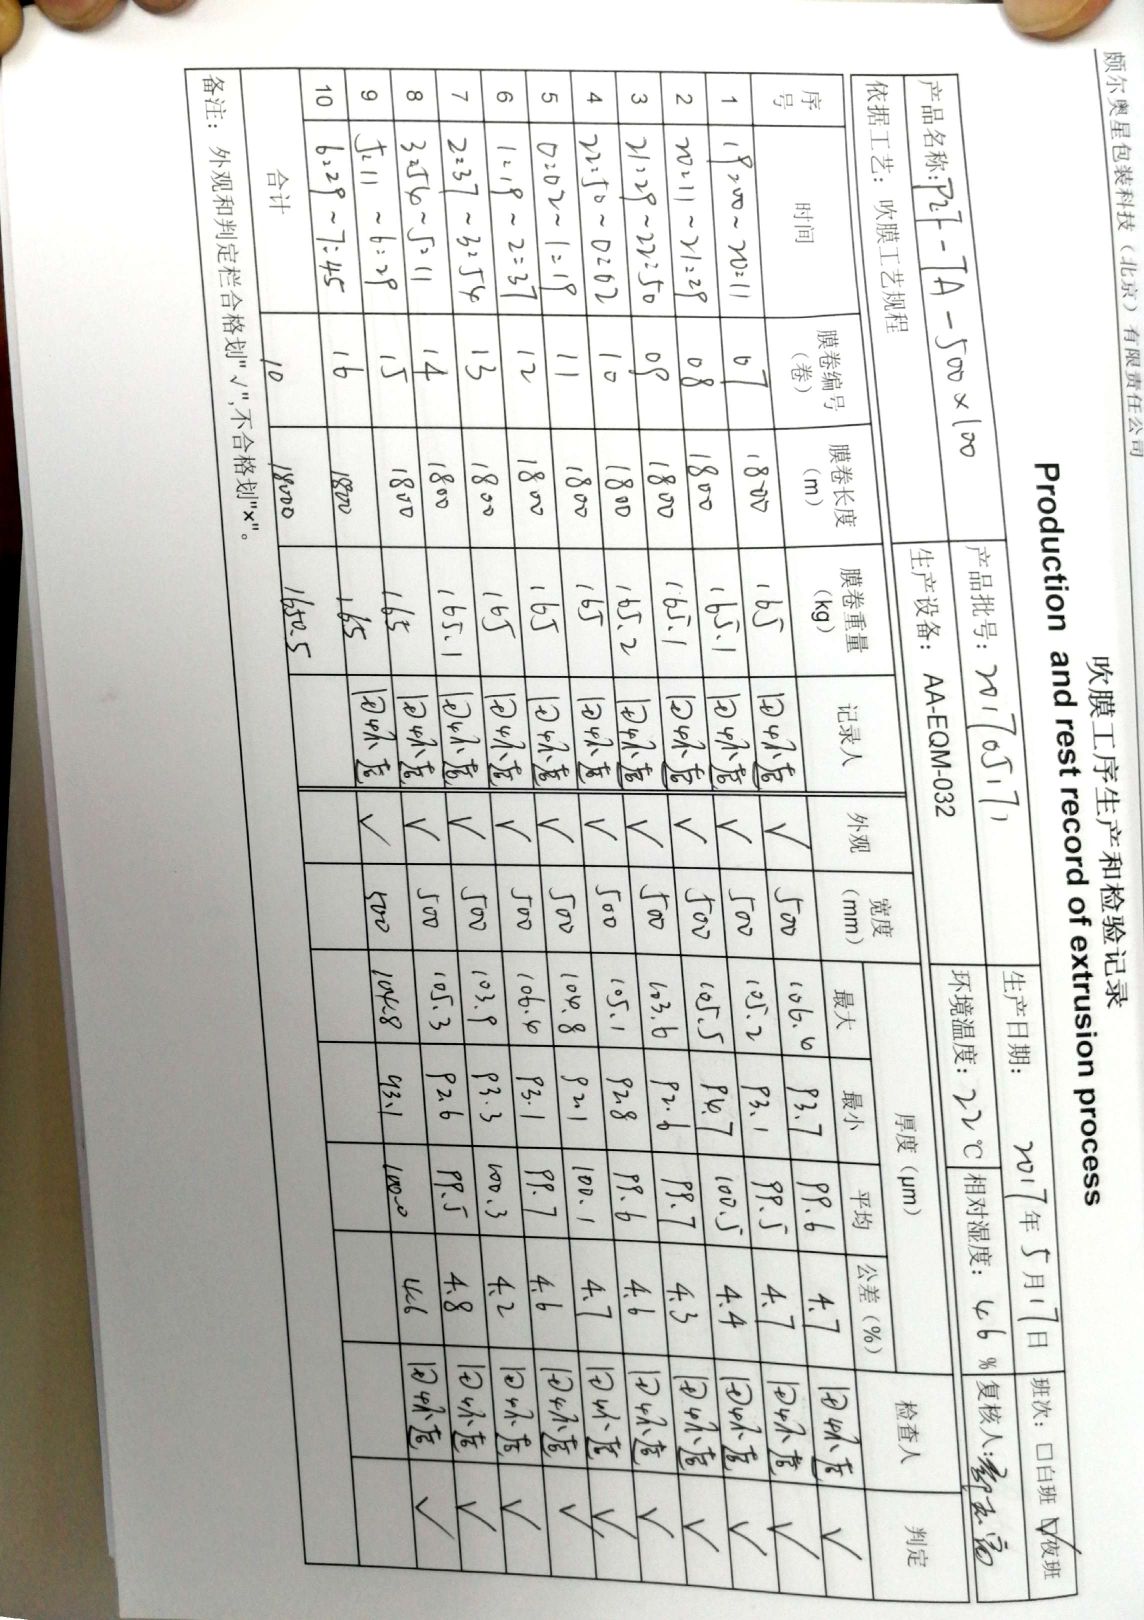 颇尔奥星包装科技（北京）有限责任公司
吹膜工序生产和检验记录
Production and rest record of extrusion process
产品名称:PZF-TA-500×100 产品批号: 201705171 生产日期: 2017年5月17日 班次: □白班 ☑夜班
依据工艺: 吹膜工艺规程 生产设备: AA-EQM-032 环境温度: 22℃ 相对湿度: 46% 复核人:
序号 时间 膜卷编号（卷） 膜卷长度（m） 膜卷重量（kg） 记录人 外观 宽度（mm） 厚度（μm） 检查人 判定
最大 最小 平均 公差（%）
1 19:00~20:11 07 1800 165 √ 500 106.4 93.7 99.6 4.7 √
2 20:11~21:29 08 1800 165.1 √ 500 105.2 93.1 99.5 4.7 √
3 21:29~22:50 09 1800 165.1 √ 500 105.5 94.7 100.5 4.4 √
4 22:50~0:02 10 1800 165.2 √ 500 103.6 92.6 99.7 4.3 √
5 0:02~1:19 11 1800 165 √ 500 105.1 92.8 99.6 4.6 √
6 1:19~2:37 12 1800 165 √ 500 104.8 92.1 100.1 4.7 √
7 2:37~3:54 13 1800 165 √ 500 106.4 93.1 99.7 4.6 √
8 3:54~5:11 14 1800 165.1 √ 500 103.9 93.3 100.3 4.2 √
9 5:11~6:29 15 1800 165 √ 500 105.3 92.6 99.5 4.8 √
10 6:29~7:45 16 1800 165 √ 500 104.8 93.1 100.0 4.6 √
合计 10 18000 1650.5
备注: 外观和判定栏合格划"√",不合格划"×"。